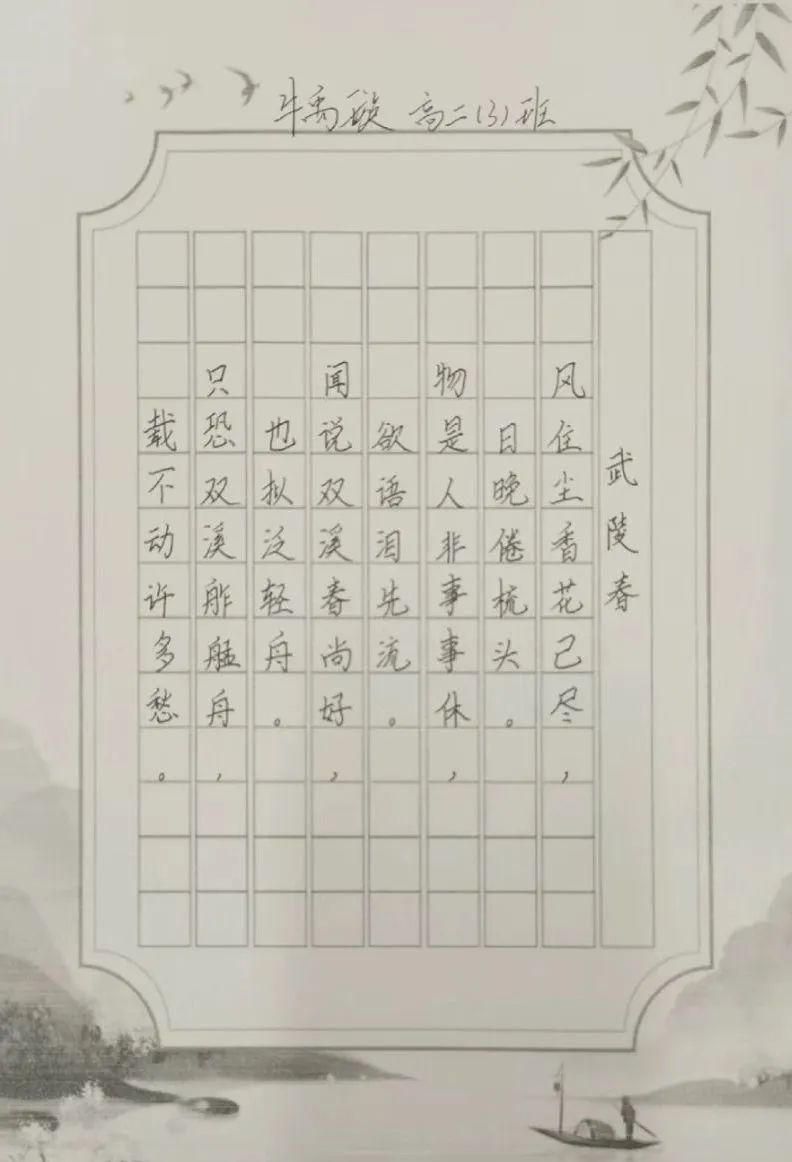 牛禹 高二(3)班
武陵春
风住尘香花己尽，
日晚倦梳头。
物是人非事事休，
欲语泪先流。
闻说双溪春尚好，
也拟泛轻舟。
只恐双溪舴艋舟，
载不动许多愁。